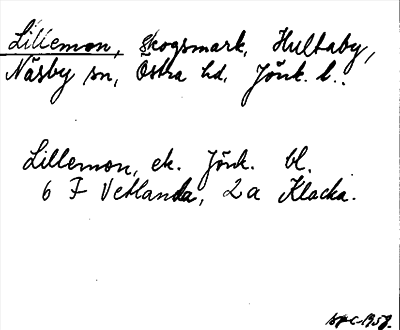 Lillemon, Skogsmark, Hultaby,
Näsby sn, Östra hd, Jönk. l..
Lillemon, ek. Jönk. bl.
6 F Vetlanda, 2a Klacka.